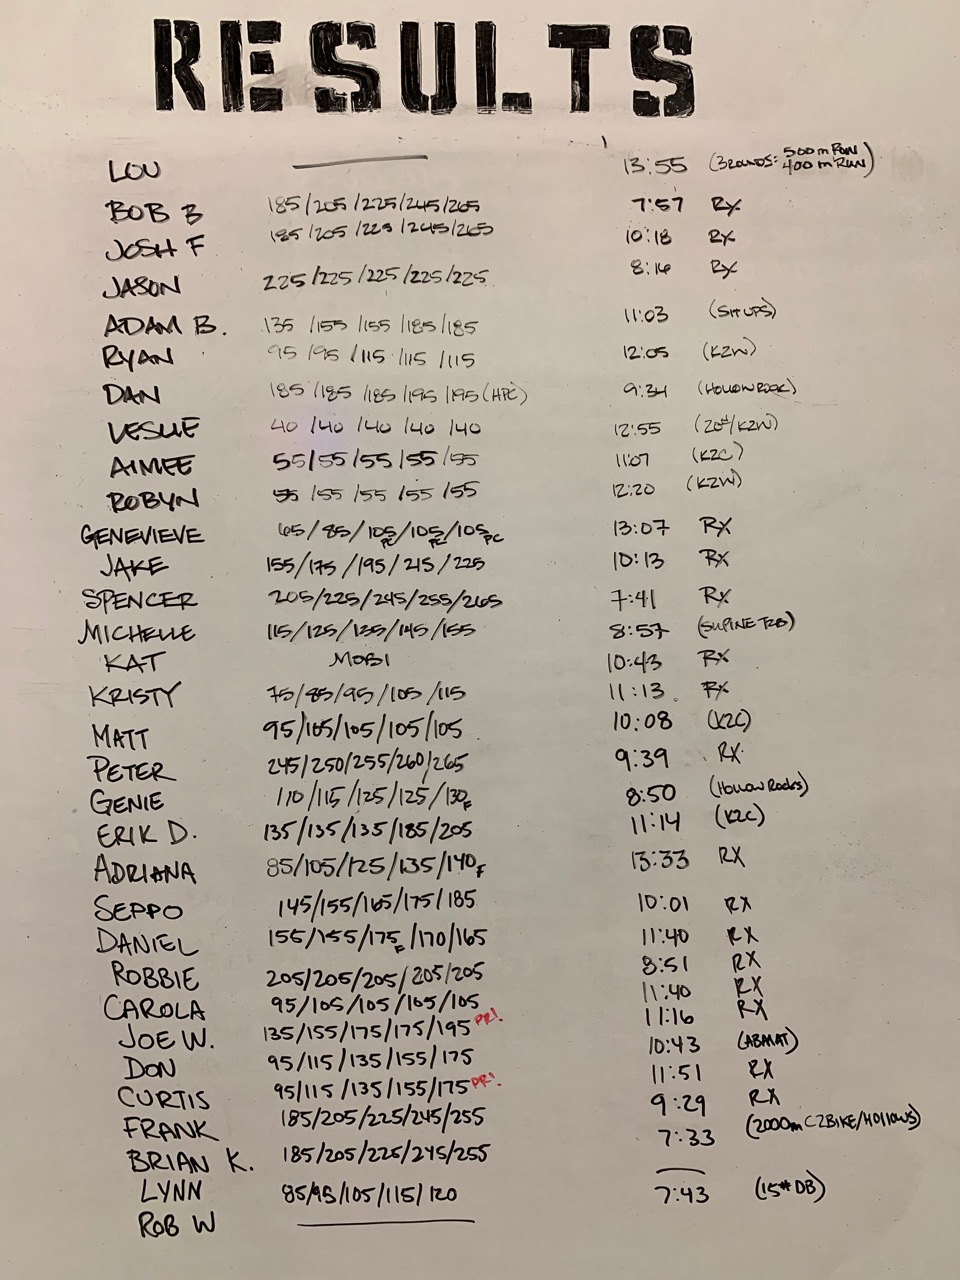 RESULTS
LOU — 13:55 (3 ROUNDS: 500m ROW 400m RUN)
BOB B 185/205/225/245/265 7:57 RX
JOSH F 185/205/225/245/265 10:18 RX
JASON 225/225/225/225/225 8:16 RX
ADAM B. 135/155/155/185/185 11:03 (SIT UPS)
RYAN 95/95/115/115/115 12:05 (K2W)
DAN 185/185/185/195/195 (HPC) 9:34 (HOLLOW ROCK)
LESLIE 40/40/40/40/40 12:55 (20#/K2W)
AIMEE 55/55/55/55/55 11:07 (K2C)
ROBYN 55/55/55/55/55 12:20 (K2W)
GENEVIEVE 65/85/105 PC/105 PC/105 PC 13:07 RX
JAKE 155/175/195/215/225 10:13 RX
SPENCER 205/225/245/255/265 7:41 RX
MICHELLE 115/125/135/145/155 8:57 (SUPINE T2B)
KAT MOBI 10:43 RX
KRISTY 75/85/95/105/115 11:13 RX
MATT 95/105/105/105/105 10:08 (K2C)
PETER 245/250/255/260/265 9:39 RX
GENIE 110/115/125/125/130 F 8:50 (Hollow Rocks)
ERIK D. 135/135/135/185/205 11:14 (K2C)
ADRIANA 85/105/125/135/140 F 13:33 RX
SEPPO 145/155/165/175/185 10:01 RX
DANIEL 155/155/175 F/170/165 11:40 RX
ROBBIE 205/205/205/205/205 8:51 RX
CAROLA 95/105/105/105/105 11:40 RX
JOE W. 135/155/175/175/195 PR! 11:16 RX
DON 95/115/135/155/175 10:43 (ABMAT)
CURTIS 95/115/135/155/175 PR! 11:51 RX
FRANK 185/205/225/245/255 9:29 RX
BRIAN K. 185/205/225/245/255 7:33 (2000m C2BIKE/HOLLOWS)
LYNN 85/95/105/115/120 —
ROB W — 7:43 (15# DB)